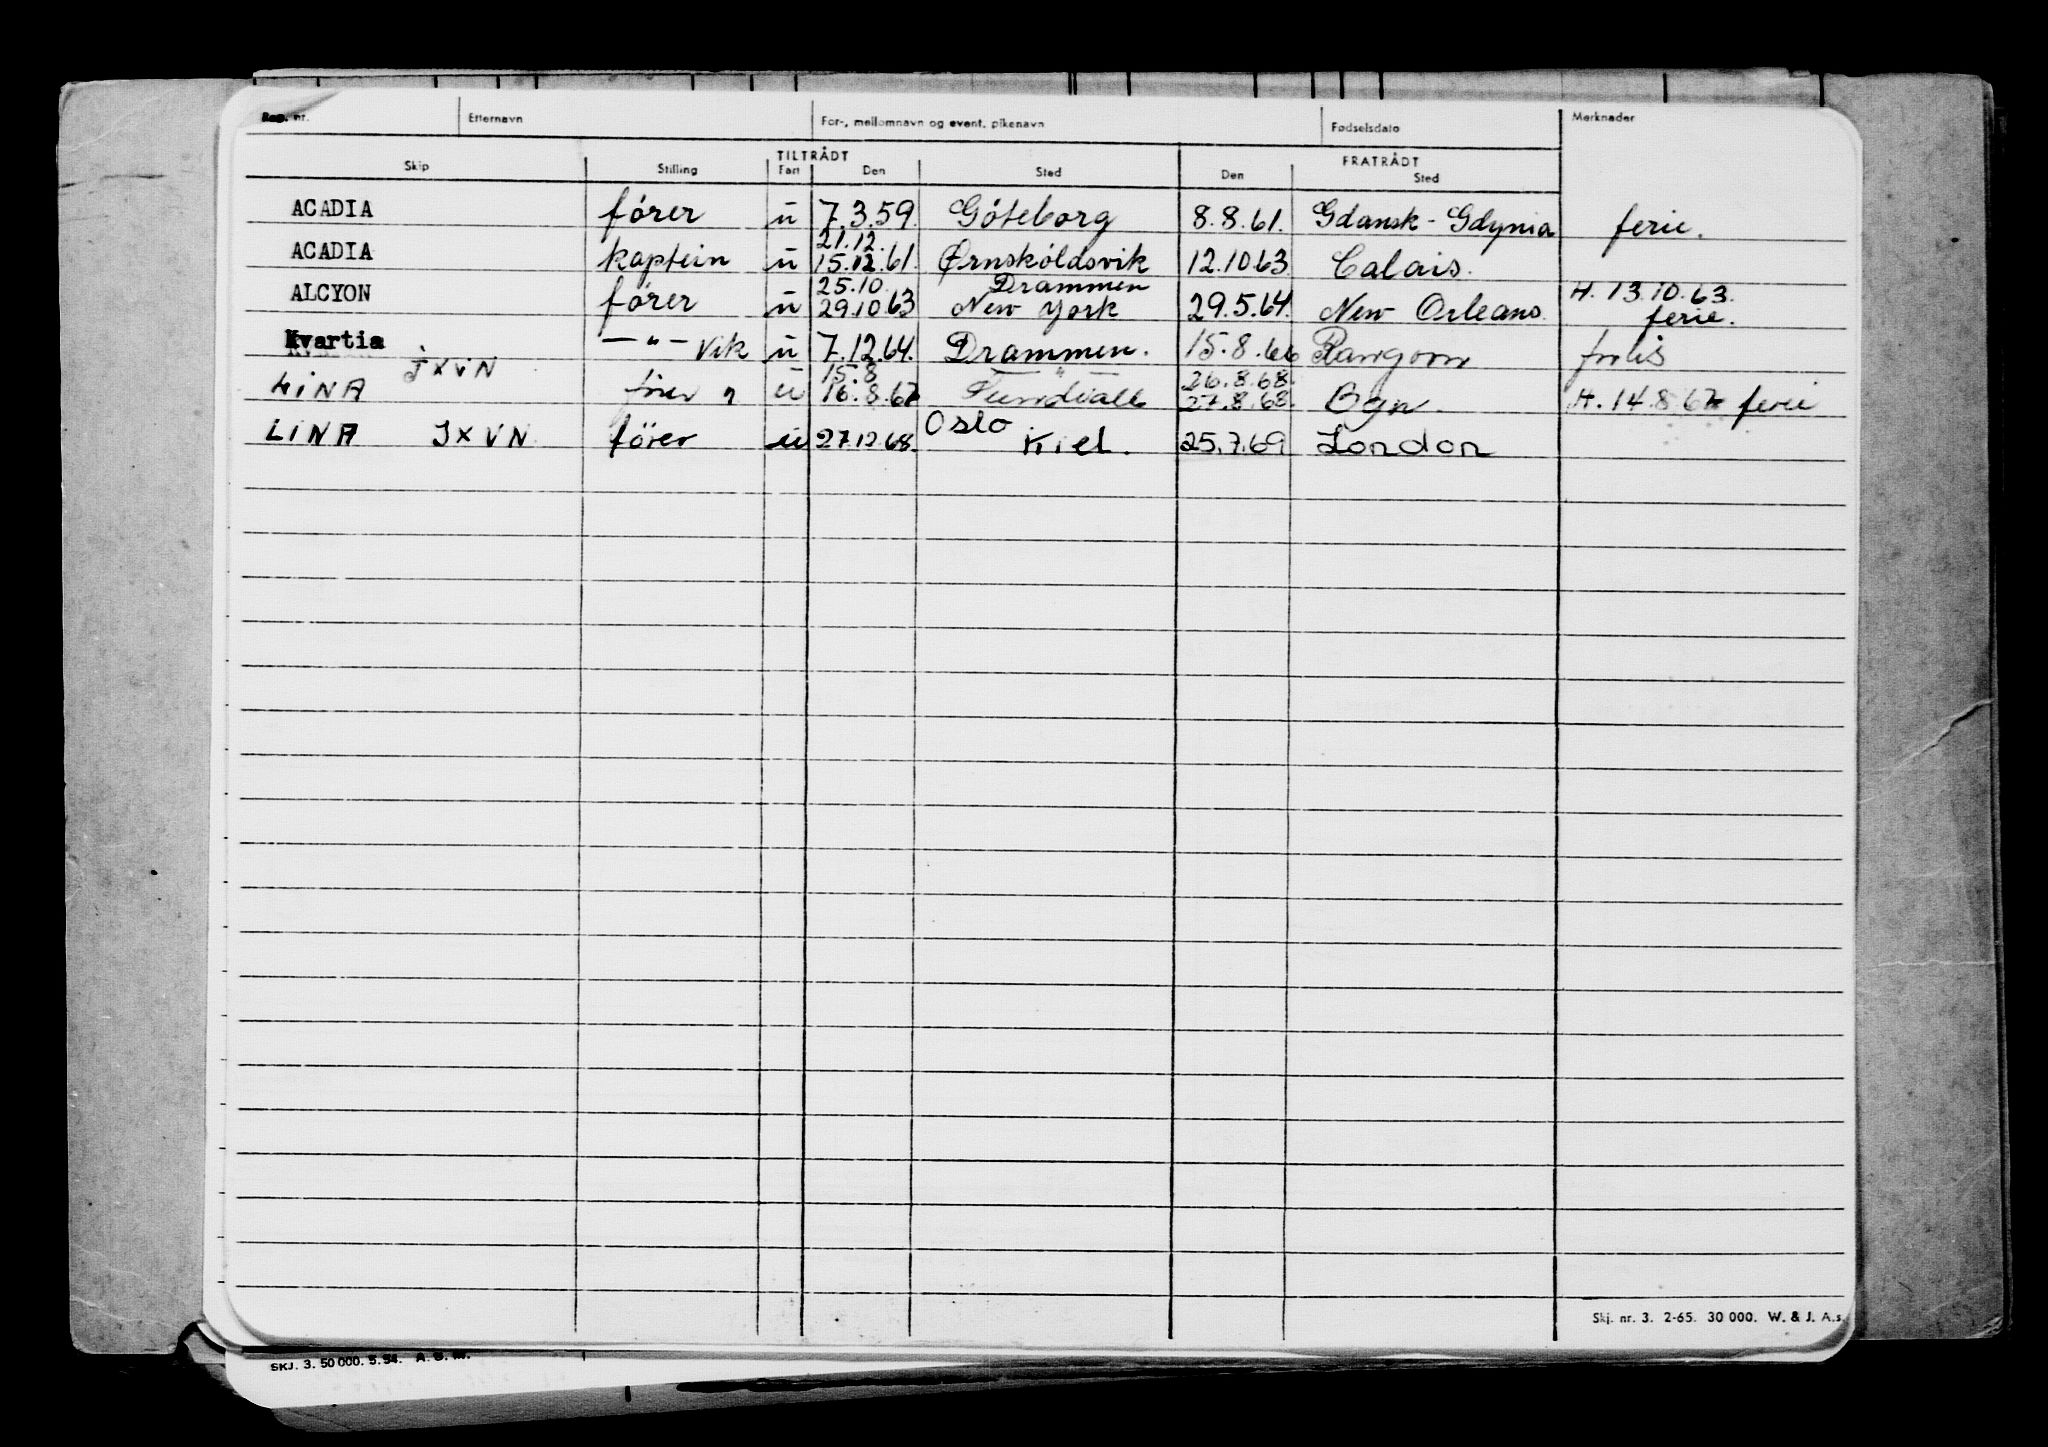 Reg. nr. Etternavn For-, mellomnavn og event. pikenavn Fødselsdato Merknader
TILTRÅDT FRATRÅDT
Skip Stilling Fart Den Sted Den Sted
ACADIA fórer u 7.3.59. Góteborg 8.8.61. Gdansk - Gdynia ferie.
21.12.
ACADIA kaptein u 15.12.61. Ørnskóldsvik 12.10.63 Calais.
25.10. Drammen H. 13.10.63.
ALCYON fórer u 29.10.63 New York 29.5.64. New Orleans ferie.
Kvartia — " — vik u 7.12.64. Drammen. 15.8.66 Rangoon
JXVN 15.8 — " — 26.8.68.
LINA fórer u 16.8.67 27.8.68. Bgn. H. 14.8.67 ferie
Oslo
LINA JXVN fórer u 27.12.68. Kiel. 25.7.69 London
Skj. nr. 3. 2-65. 30 000. W. & J. A.s.
SKJ. 3. 50 000. 5. 54.